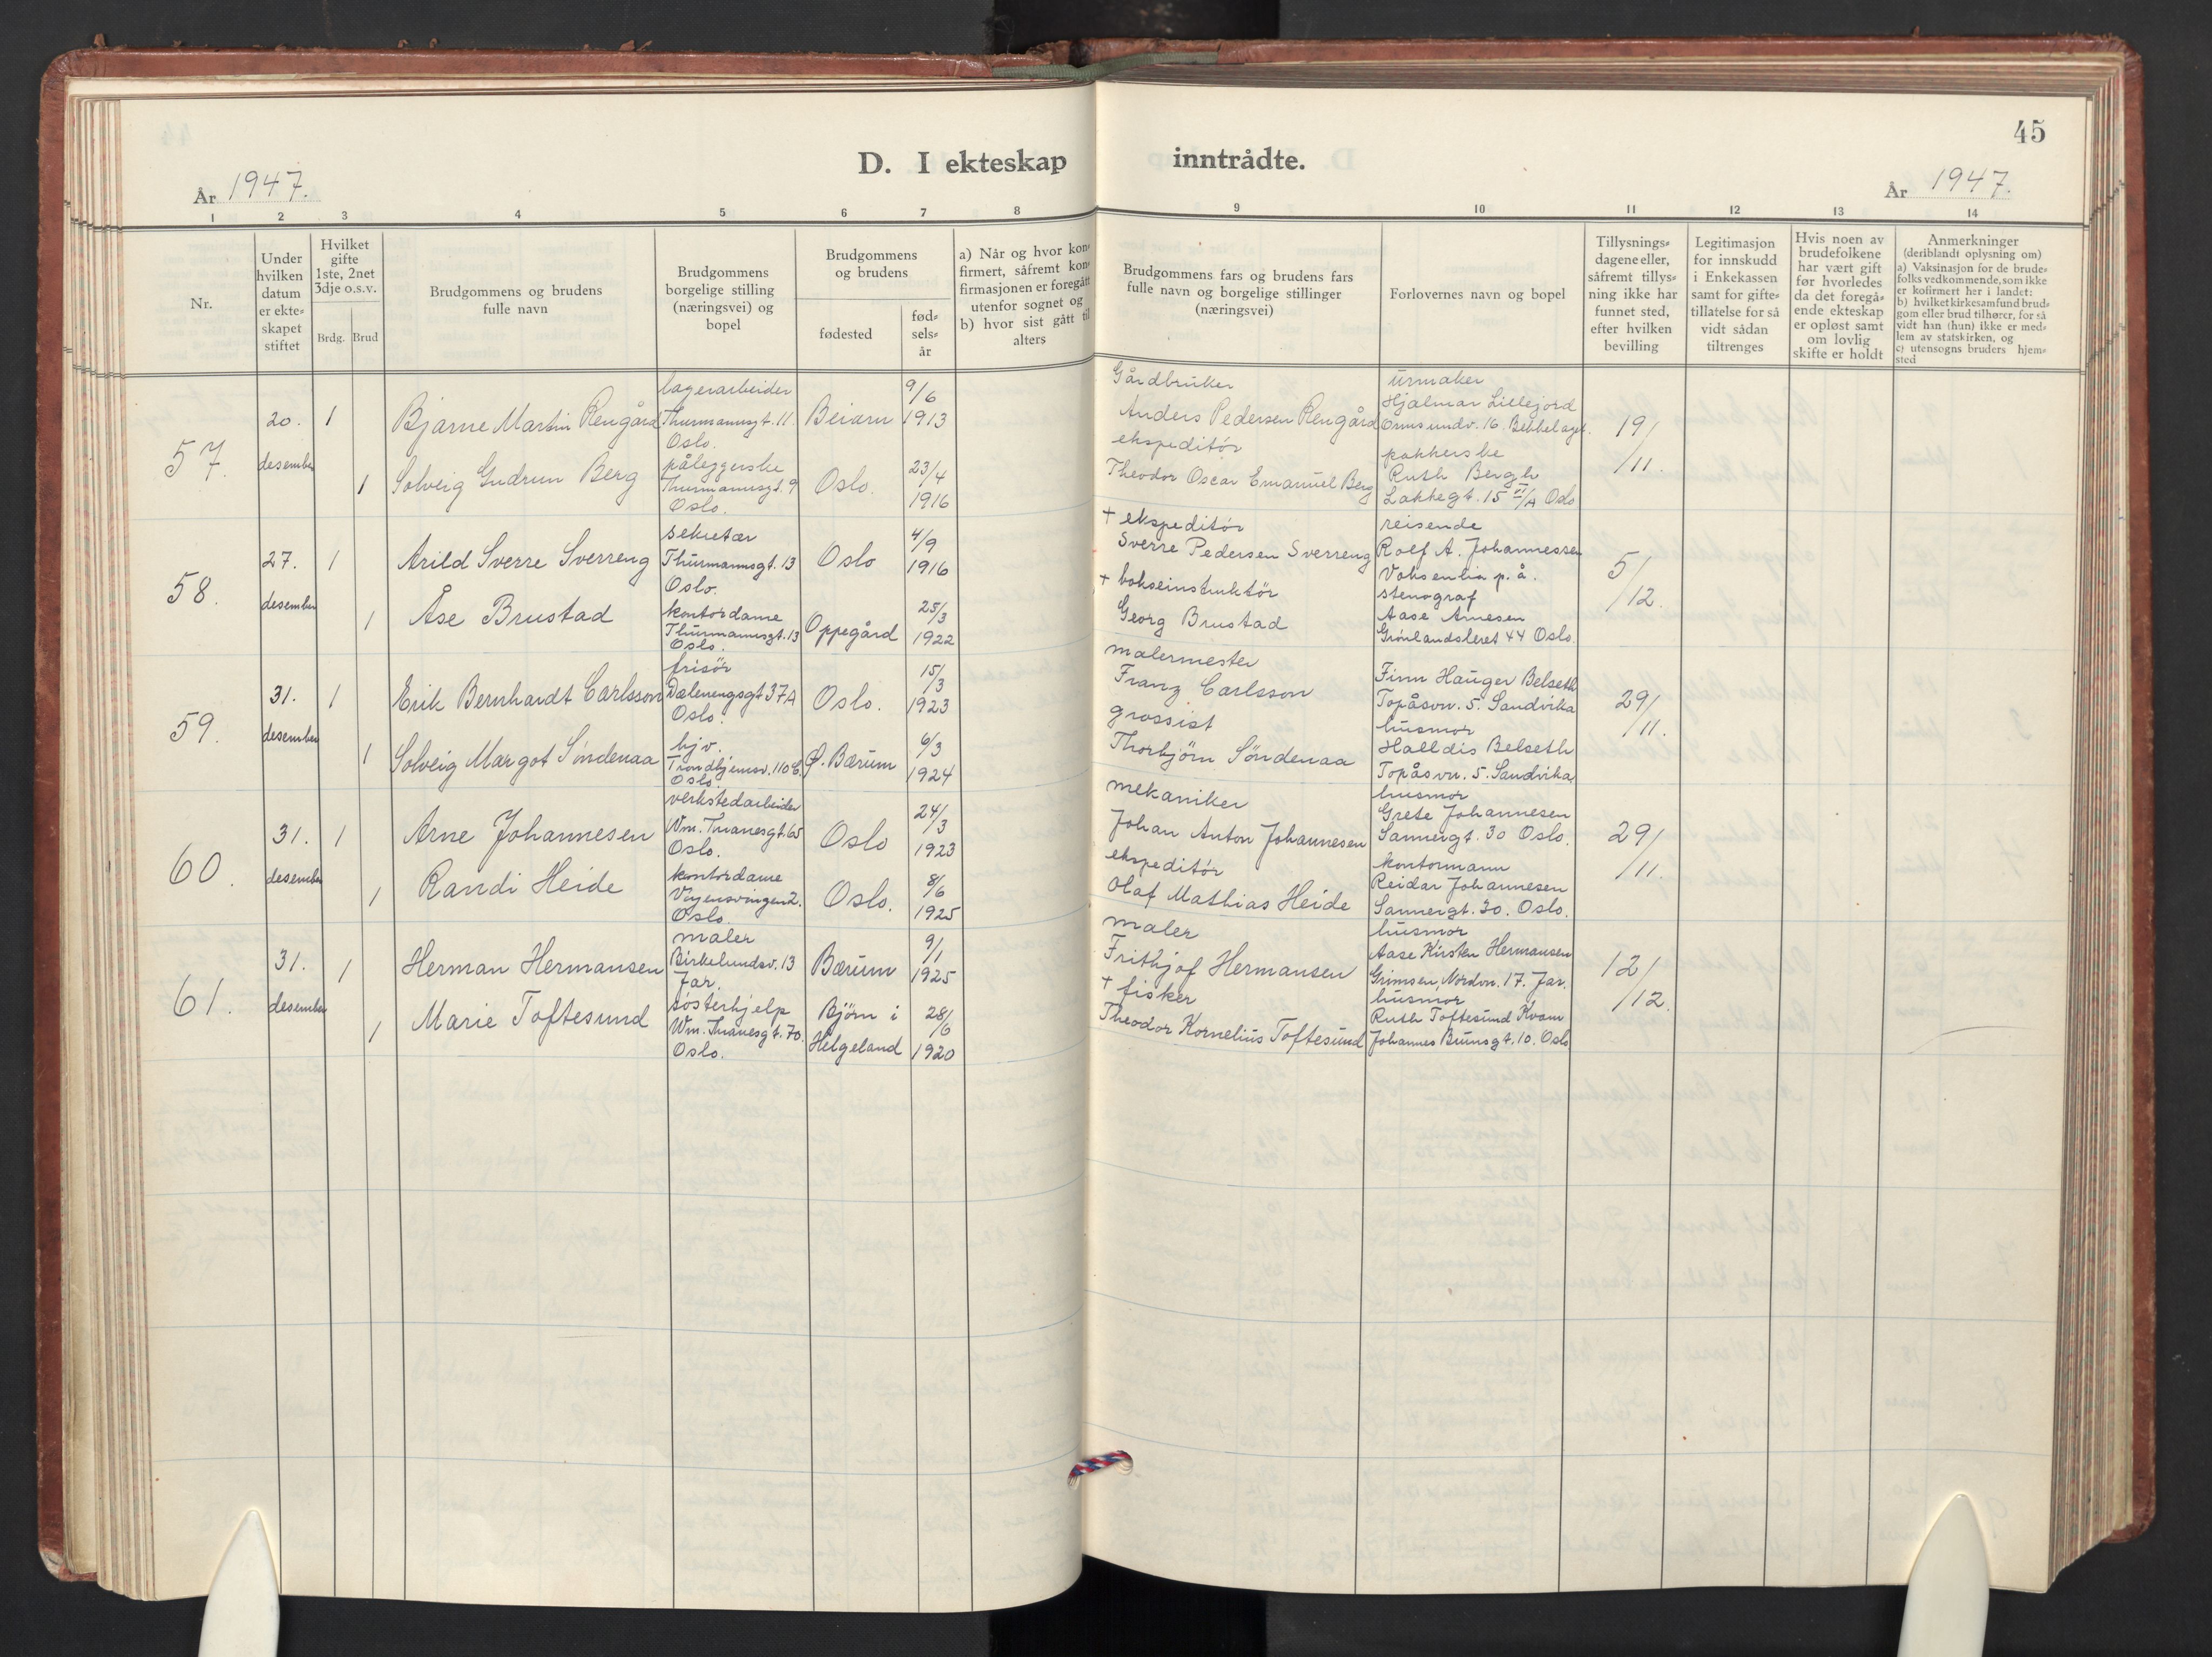 45
D. I ekteskap inntrådte.
År 1947.
År 1947.
1 2 3 4 5 6 7 8 9 10 11 12 13 14
Nr.
Under
hvilken
datum
er ekte-
skapet
stiftet
Hvilket
gifte
1ste, 2net
3dje o.s.v.
Brdg. Brud
Brudgommens og brudens
fulle navn
Brudgommens
borgelige stilling
(næringsvei) og
bopel
Brudgommens
og brudens
fødested
fød-
sels-
år
a) Når og hvor kon-
firmert, såfremt kon-
firmasjonen er foregått
utenfor sognet og
b) hvor sist gått til
alters
Brudgommens fars og brudens fars
fulle navn og borgelige stillinger
(næringsvei)
Forlovernes navn og bopel
Tillysnings-
dagene eller,
såfremt tillys-
ning ikke har
funnet sted,
efter hvilken
bevilling
Legitimasjon
for innskudd
i Enkekassen
samt for gifte-
tillatelse for så
vidt sådan
tiltrenges
Hvis noen av
brudefolkene
har vært gift
før hvorledes
da det foregå-
ende ekteskap
er opløst samt
om lovlig
skifte er holdt
Anmerkninger
(deriblandt oplysning om)
a) Vaksinasjon for de brude-
folks vedkommende, som ikke
er kofirmert her i landet;
b) hvilket kirkesamfund brud-
gom eller brud tilhører, for så
vidt han (hun) ikke er med-
lem av statskirken, og
c) utensogns bruders hjem-
sted
57.
20.
desember
1
Bjarne Martin Rengård
lagerarbeider
Thurmannsgt. 11
Oslo.
Beiarn
9/6
1913
1
Solveig Gudrun Berg
påleggerske
Thurmannsgt. 9
Oslo.
Oslo.
23/4
1916
Gårdbruker
Anders Pedersen Rengård
ekspeditör
Theodor Oscar Emanuel Berg
urmaker
Hjalmar Lillejord
Ormsundv. 16. Bekkelaget.
pakkerske
Ruth Bergh
Lakkegt. 15 II/A Oslo
19/
/11.
58.
27.
desember
1
Arild Sverre Sverreng
sekretær
Thurmannsgt. 13
Oslo.
Oslo
4/9
1916
1
Åse Brustad
kontordame
Thurmannsgt. 13
Oslo.
Oppegård
25/3
1922
+ ekspeditör
Sverre Pedersen Sverreng
+ bokseinstruktör
Georg Brustad
reisende
Rolf A. Johannessen
Voksenlia p. å.
stenograf
Aase Arnesen
Grönlandsleret 44 Oslo.
5/
/12.
59.
31.
desember
1
Erik Bernhardt Carlsson
frisör
Dælenenggt 37A
Oslo.
Oslo.
15/3
1923
1
Solveig Margot Söndenaa
hjv.
Trondhjemsv. 110 C.
Oslo.
Ø. Bærum
6/3
1924
malermester
Franz Carlsson
grossist
Thorbjörn Söndenaa
Finn Hauger Belseth
Topåsvn. 5. Sandvika
husmor
Halldis Belseth
Topåsvn. 5. Sandvika
29/
/11.
60.
31.
desember
1
Arne Johannesen
verkstedarbeider
Wm. Thranesgt. 65
Oslo.
Oslo
24/3
1923
1
Randi Heide
kontordame
Vøyensvingen 2.
Oslo.
Oslo.
8/6
1925
mekaniker
Johan Anton Johannesen
ekspeditör
Olaf Mathias Heide
husmor
Grete Johannesen
Sannergt. 30 Oslo.
kontormann
Reidar Johannesen
Sannergt. 30. Oslo.
29/
/11.
61.
31.
desember
1
Herman Hermansen
maler
Birkelundsv. 13
Jar.
Bærum
9/1
1925
1
Marie Toftesund
sösterhjelp
Wm. Thranesgt. 70.
Oslo.
Bjørn i
Helgeland
28/6
1920
maler
Frithjof Hermansen
+ fisker
Theodor Kornelius Toftesund
husmor
Aase Kirsten Hermansen
Grimsen, Nordvn. 17. Jar.
husmor
Ruth Toftesund Kvam
Johannes Brunsgt. 10. Oslo
12/
/12.